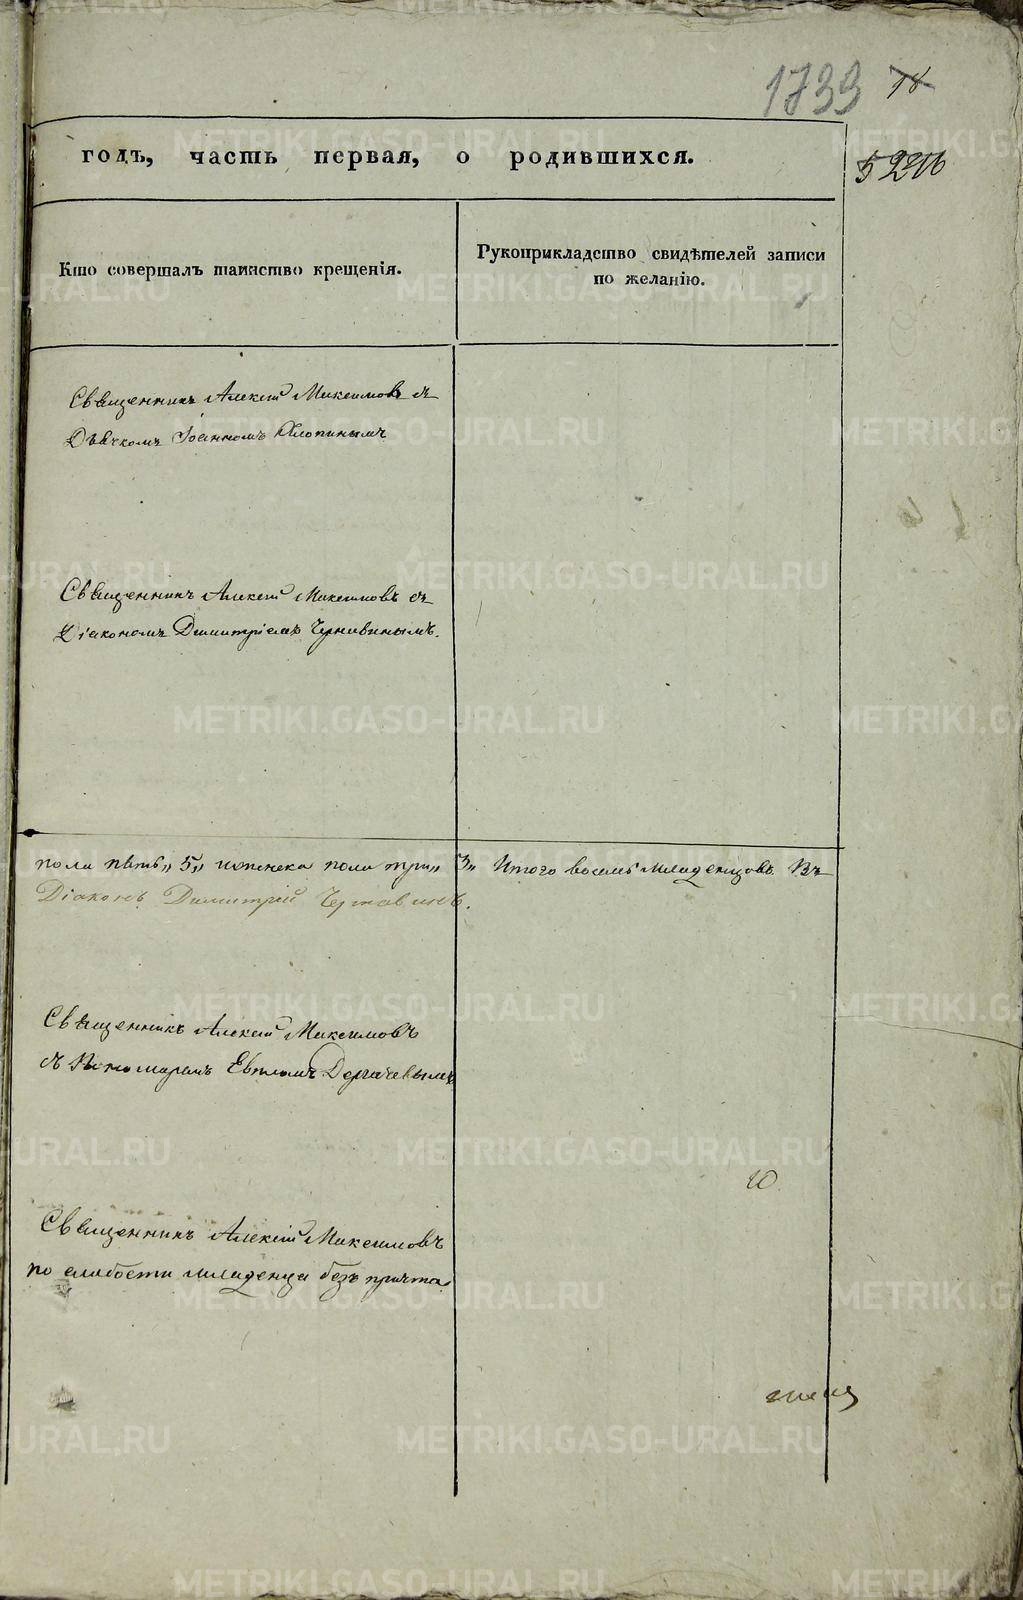 1733 18
годъ, часть первая, о родившихся.
Кто совершалъ таинство крещенія.
Рукоприкладство свидѣтелей записи
по желанію.
Священникъ Алексій Максимовъ съ
Дьячкомъ Іоанномъ
Священникъ Алексій Максимовъ съ
Діакономъ Димитріемъ
пола пять„ 5„ и женска пола три„ 3„ Итого восемь младенцовъ. Въ
Діаконъ Димитрій
Священникъ Алексій Максимовъ
съ Пономаремъ Дергачевымъ
Священникъ Алексій Максимовъ
по слабости младенца безъ причта
METRIKI.GASO-URAL.RU